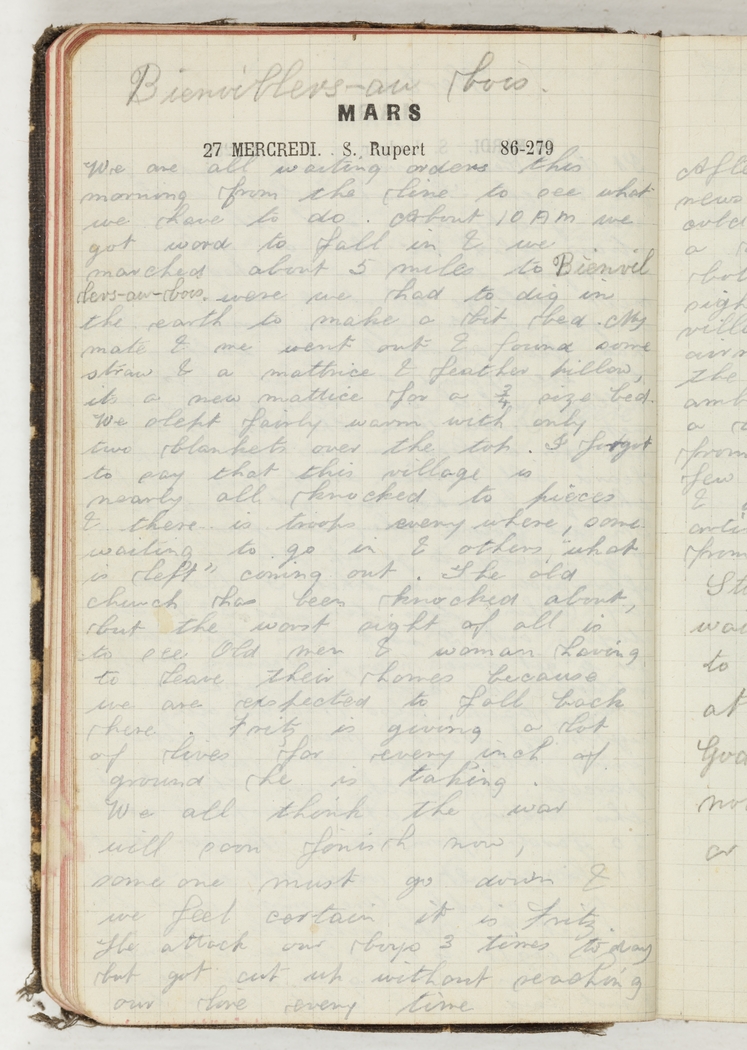 Bienvillers-au bois.
MARS
27 MERCREDI. S. Rupert 86-279
We are all waiting orders this
morning from the line to see what
we have to do. About 10 AM we
got word to fall in & we
marched about 5 miles to Bienvil
lers-au-bois. were we had to dig in
the earth to make a bit bed. My
mate & me went out & found some
straw & a mattrice & feather pillow,
its a new mattice for a 3/4 size bed.
We slept fairly warm with only
two blankets over the top. I forgot
to say that this village is
nearly all knocked to pieces
& there is troops every where, some
waiting to go in & others, "what
is left" coming out. The old
church has been knocked about,
but the worst sight of all is
to see Old men & woman having
to leave their homes because
we are expected to fall back
here. Fritz is giving a lot
of lives for every inch of
ground he is taking.
We all think the war
will soon finish now,
some one must go down &
we feel certain it is Fritz.
He attack our boys 3 times to day
but got cut up without reaching
our line every time
Afte
news
cold
a
sight
villa
the
amb
a
from
few
&
from
to
at
God
or